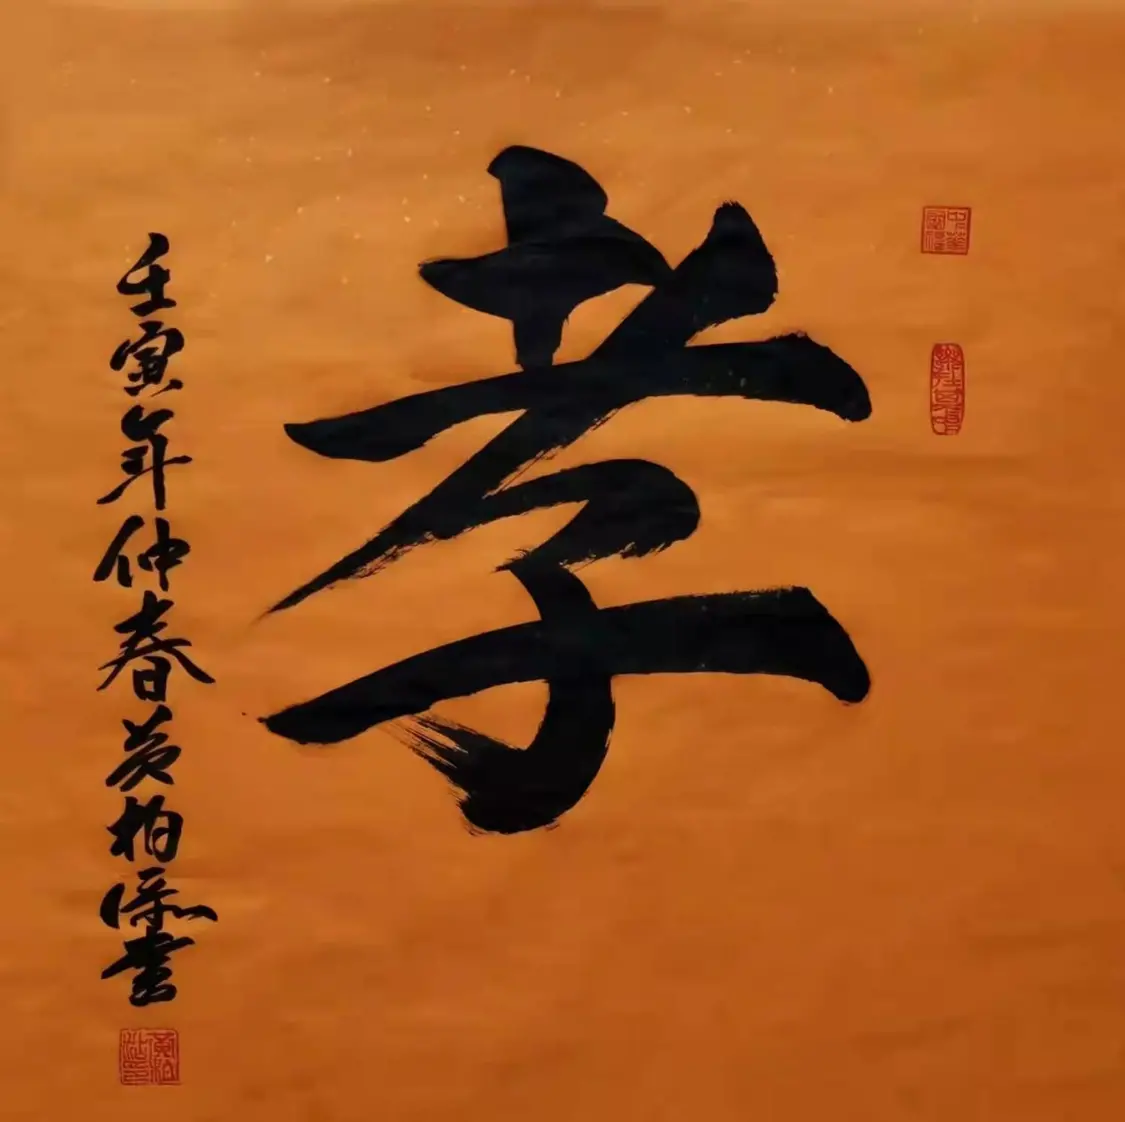 孝
壬寅年仲春黄柏添書